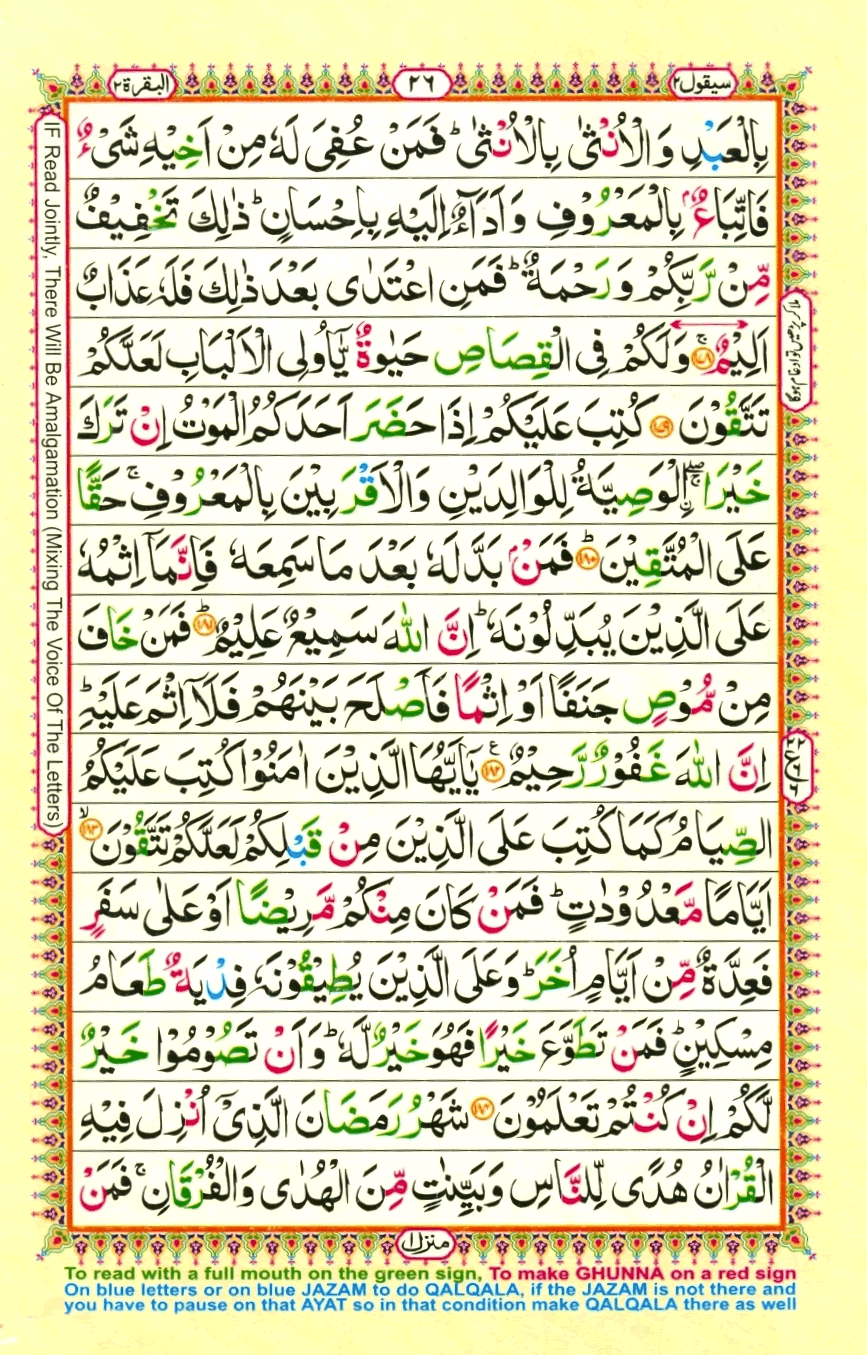 سيقول٢
٢٦
البقرة٢
بِالْعَبْدِ وَالْاُنْثٰى بِالْاُنْثٰى ؕ فَمَنْ عُفِىَ لَهٗ مِنْ اَخِيْهِ شَىْءٌ
فَاتِّبَاعٌ ۢ بِالْمَعْرُوْفِ وَاَدَآءٌ اِلَيْهِ بِاِحْسَانٍ ؕ ذٰلِكَ تَخْفِيْفٌ
مِّنْ رَّبِّكُمْ وَرَحْمَةٌ ؕ فَمَنِ اعْتَدٰى بَعْدَ ذٰلِكَ فَلَهٗ عَذَابٌ
اَلِيْمٌ ۚ﴿۱۷۸﴾ وَلَكُمْ فِى الْقِصَاصِ حَيٰوةٌ يّٰٓاُولِى الْاَلْبَابِ لَعَلَّكُمْ
تَتَّقُوْنَ ﴿۱۷۹﴾ كُتِبَ عَلَيْكُمْ اِذَا حَضَرَ اَحَدَكُمُ الْمَوْتُ اِنْ تَرَكَ
خَيْرَا ۖۚ اۨلْوَصِيَّةُ لِلْوَالِدَيْنِ وَالْاَقْرَبِيْنَ بِالْمَعْرُوْفِ ۚ حَقًّا
عَلَى الْمُتَّقِيْنَ ؕ﴿۱۸۰﴾ فَمَنْۢ بَدَّلَهٗ بَعْدَ مَا سَمِعَهٗ فَاِنَّمَاۤ اِثْمُهٗ
عَلَى الَّذِيْنَ يُبَدِّلُوْنَهٗ ؕ اِنَّ اللّٰهَ سَمِيْعٌ عَلِيْمٌ ؕ﴿۱۸۱﴾ فَمَنْ خَافَ
مِنْ مُّوْصٍ جَنَفًا اَوْ اِثْمًا فَاَصْلَحَ بَيْنَهُمْ فَلَاۤ اِثْمَ عَلَيْهِ ؕ
اِنَّ اللّٰهَ غَفُوْرٌ رَّحِيْمٌ ﴿۱۸۲﴾ يٰٓاَيُّهَا الَّذِيْنَ اٰمَنُوْا كُتِبَ عَلَيْكُمُ
الصِّيَامُ كَمَا كُتِبَ عَلَى الَّذِيْنَ مِنْ قَبْلِكُمْ لَعَلَّكُمْ تَتَّقُوْنَ ۙ﴿۱۸۳﴾
اَيَّامًا مَّعْدُوْدٰتٍ ؕ فَمَنْ كَانَ مِنْكُمْ مَّرِيْضًا اَوْ عَلٰى سَفَرٍ
فَعِدَّةٌ مِّنْ اَيَّامٍ اُخَرَ ؕ وَعَلَى الَّذِيْنَ يُطِيْقُوْنَهٗ فِدْيَةٌ طَعَامُ
مِسْكِيْنٍ ؕ فَمَنْ تَطَوَّعَ خَيْرًا فَهُوَ خَيْرٌ لَّهٗ ؕ وَاَنْ تَصُوْمُوْا خَيْرٌ
لَّكُمْ اِنْ كُنْتُمْ تَعْلَمُوْنَ ﴿۱۸۴﴾ شَهْرُ رَمَضَانَ الَّذِىْٓ اُنْزِلَ فِيْهِ
الْقُرْاٰنُ هُدًى لِّلنَّاسِ وَبَيِّنٰتٍ مِّنَ الْهُدٰى وَالْفُرْقَانِ ۚ فَمَنْ
منزل١
IF Read Jointly, There Will Be Amalgamation (Mixing The Voice Of The Letters)
To read with a full mouth on the green sign, To make GHUNNA on a red sign
On blue letters or on blue JAZAM to do QALQALA, if the JAZAM is not there and
you have to pause on that AYAT so in that condition make QALQALA there as well